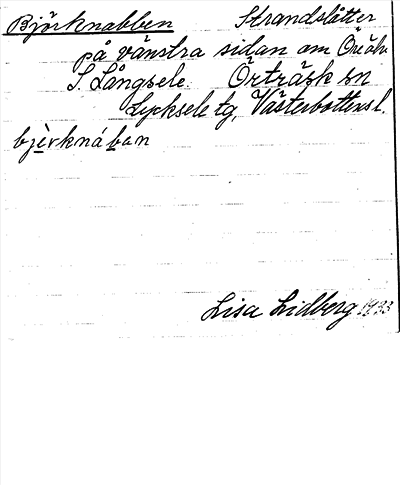 Björknabben Strandslåtter
på vänstra sidan om Öreälv.
S. Långsele. Örträsk sn
Lycksele tg, Västerbottens l.
bjèrknában
Lisa Lidberg 1933